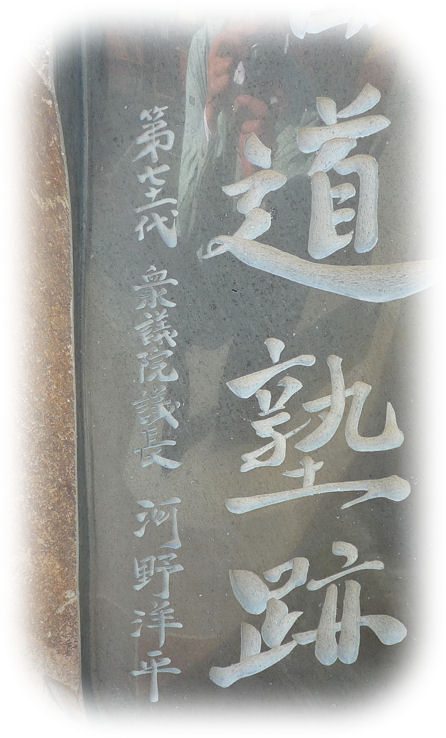 道塾跡
第七十一代 衆議院議長 河野洋平